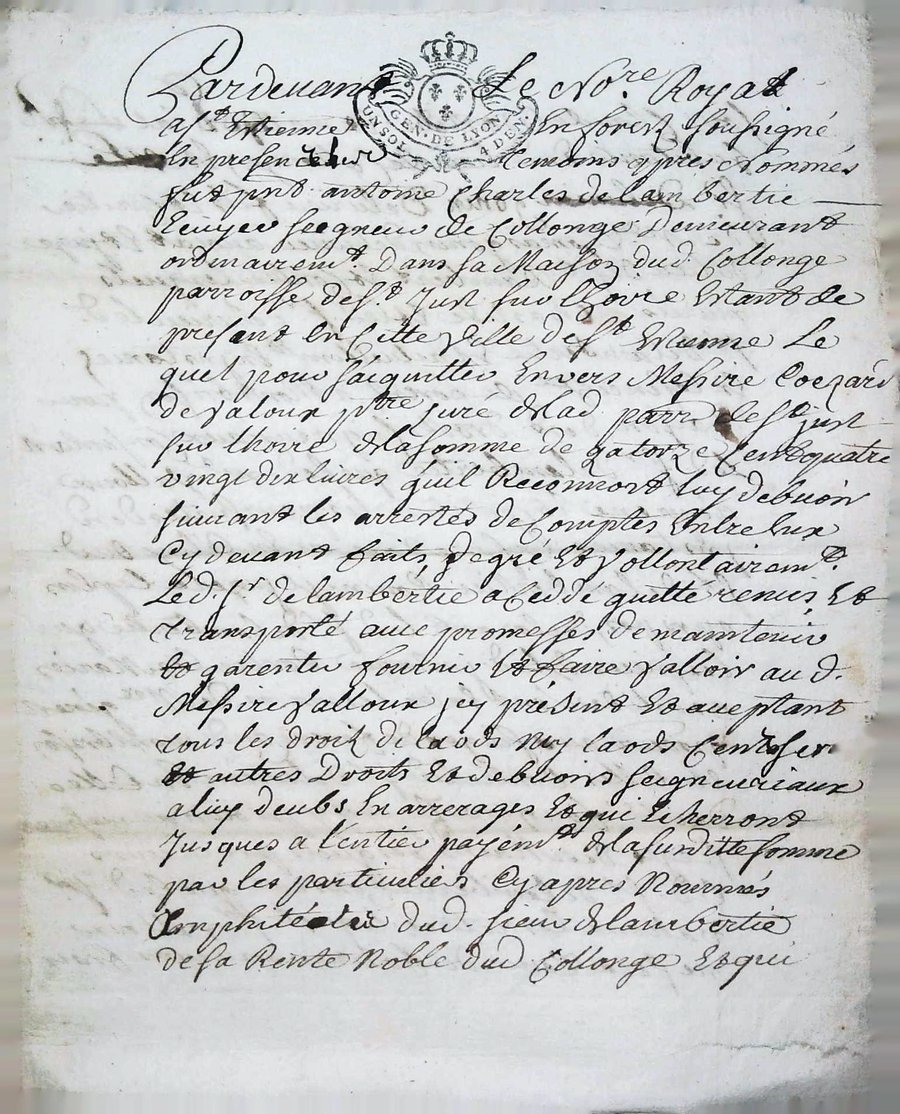 Pardevant Le No.re Royal
UN SOL GEN. DE LYON 4 DEN.
a St Etienne En forest soussigné
En presence des temoins apres Nommés
fut pnt antoine Charles de Lambertie
Ecuyer seigneur de Collonge Demeurant
ordinairemt. Dans sa Maison dud. Collonge
parroisse de st Just sur Lhoire Etant de
present En Cette ville de st Etienne Le
quel pour sacquitter Envers Messire
de valoux ptre juré de lad parr de st just
sur lhoire de la somme de quatorze Cent quatre
vingt dix livres quil Reconnoit luy debvoir
suivant les arrestés de Comptes Entre Eux
Cy devant faits, de gré Et vollontairemt.
Led. sr de lambertie a Ceddé quitté remis Et
transporté avec promesses de maintenir
Et garentir fournir Et faire valloir au d.
Messire valloux icy présent Et aceptant
tous les droits de laods my laods Cens servis
Et autres Droits Et debvoirs seigneuriaux
a luy deubs En arrerages Et qui Echerront
Jusques a l'entier payemt. de la surditte somme
par les particuliers Cy apres Nommés
Emphitéotes dud. sieur de lambertie
de sa Rente Noble dud Collonge Et qui